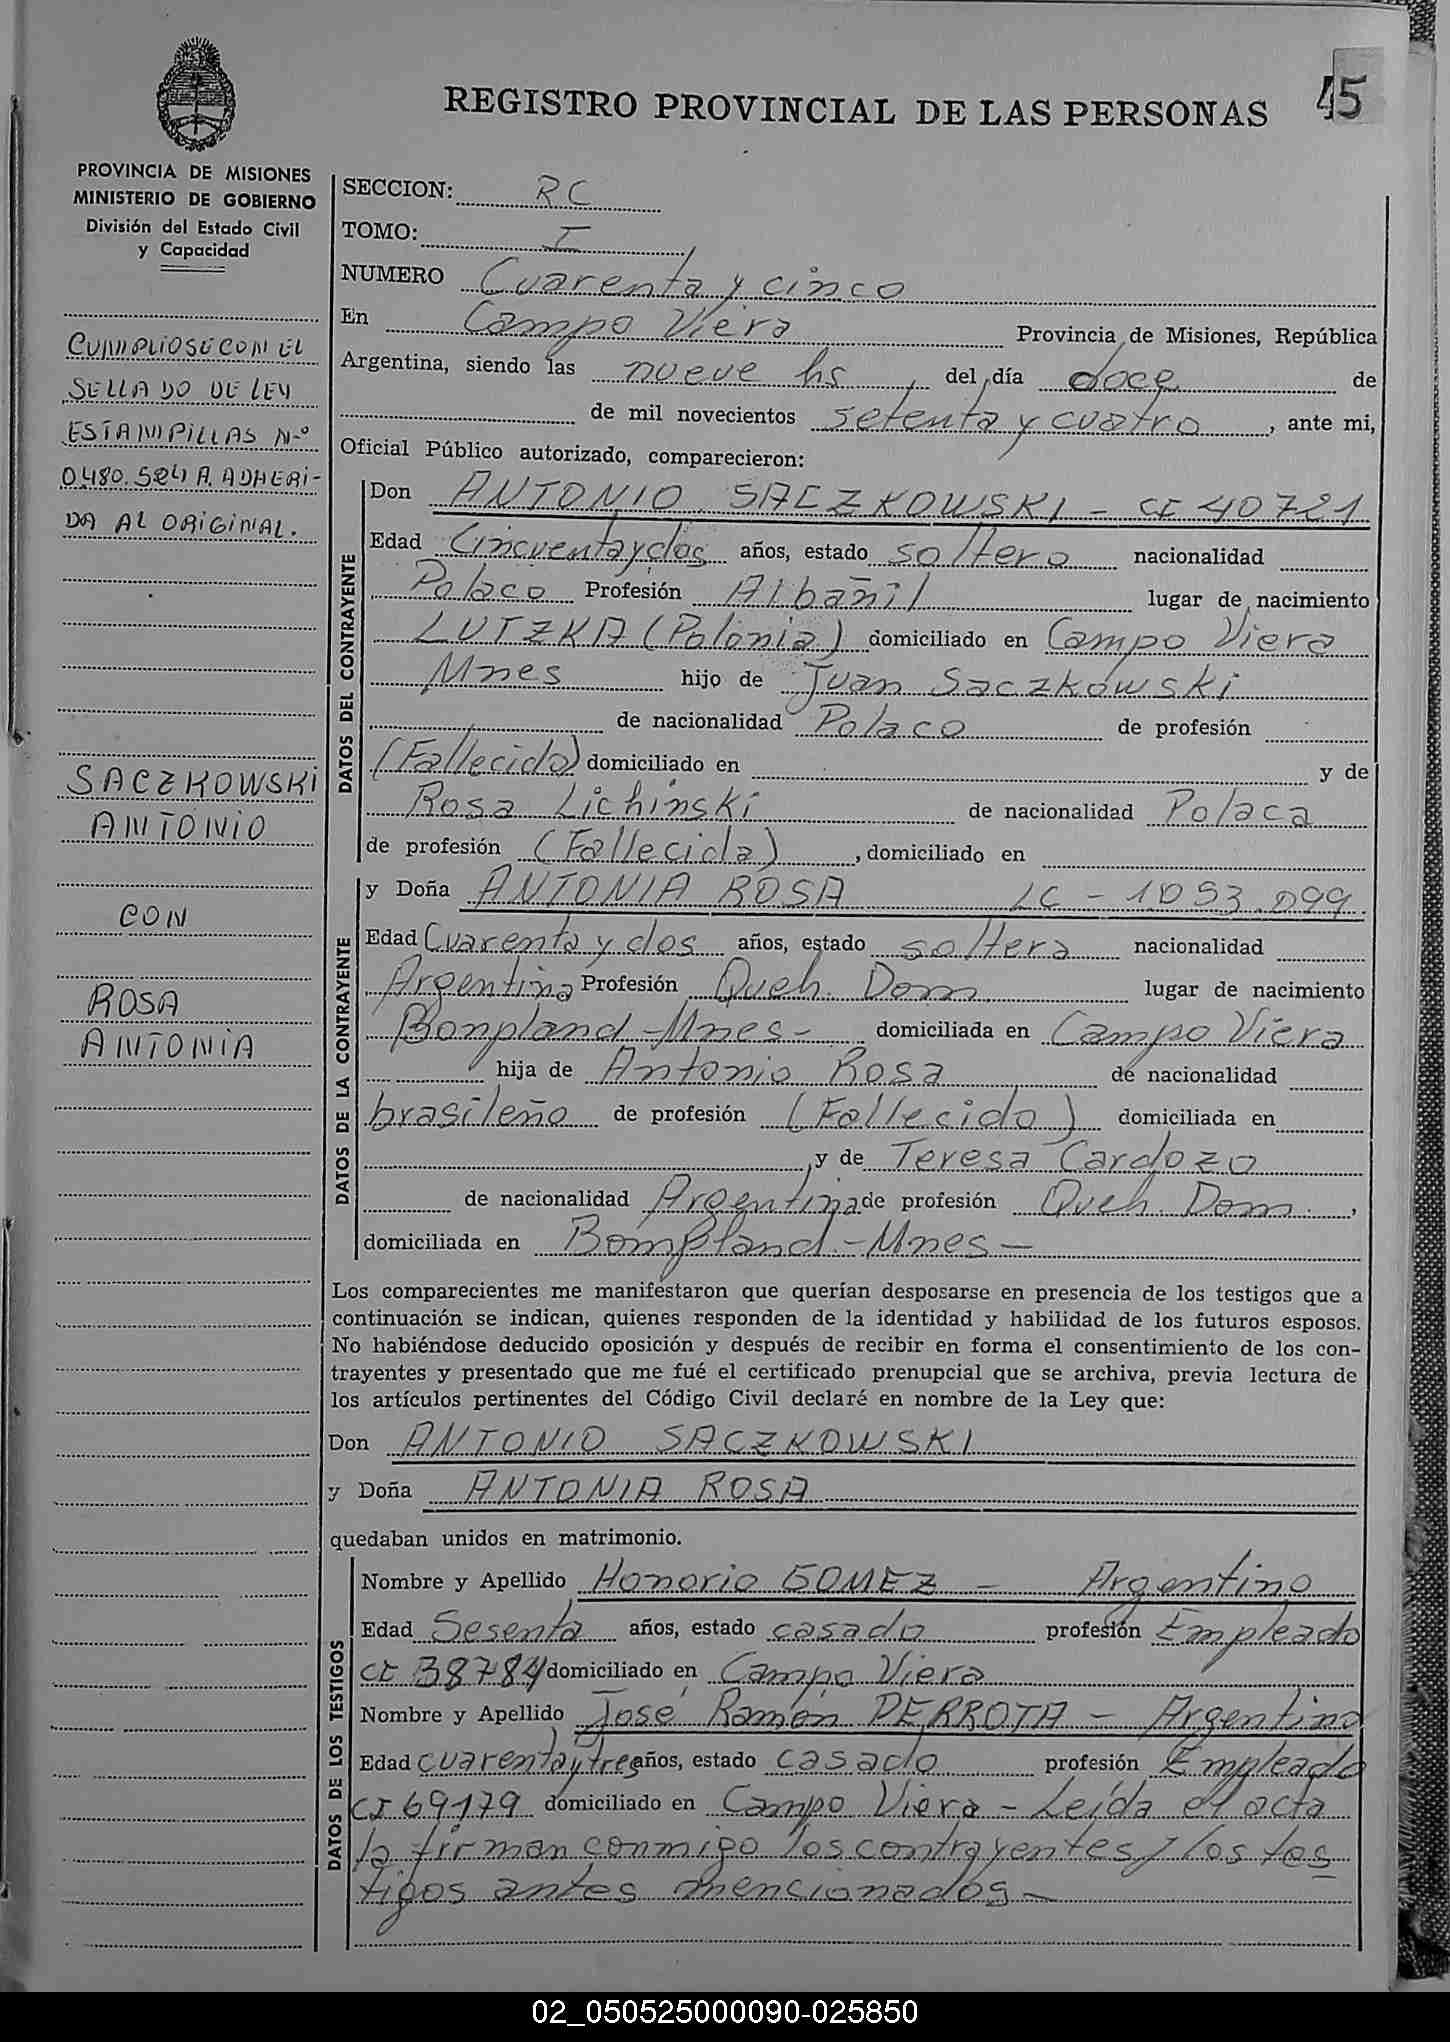 REGISTRO PROVINCIAL DE LAS PERSONAS 45
PROVINCIA DE MISIONES
MINISTERIO DE GOBIERNO
División del Estado Civil
y Capacidad
CUMPLIOSE CON EL
SELLADO DE LEY
ESTAMPILLAS Nº
0480.584 A. ADHERI-
DA AL ORIGINAL.
SACZKOWSKI
ANTONIO
CON
ROSA
ANTONIA
SECCION: RC
TOMO: I
NUMERO Cuarenta y cinco
En Campo Viera Provincia de Misiones, República
Argentina, siendo las nueve hs, del día doce de
de mil novecientos setenta y cuatro, ante mi,
Oficial Público autorizado, comparecieron:
DATOS DEL CONTRAYENTE
Don ANTONIO SACZKOWSKI - CI 40721
Edad Cincuenta y dos años, estado soltero nacionalidad
Polaco Profesión Albañil lugar de nacimiento
LUTZKA (Polonia) domiciliado en Campo Viera
Mnes hijo de Juan Saczkowski
de nacionalidad Polaco de profesión
(Fallecido) domiciliado en y de
Rosa Lichinski de nacionalidad Polaca
de profesión (Fallecida), domiciliado en
DATOS DE LA CONTRAYENTE
y Doña ANTONIA ROSA LC - 1093.099
Edad Cuarenta y dos años, estado soltera nacionalidad
Argentina Profesión Queh. Dom. lugar de nacimiento
Bonpland - Mnes - domiciliada en Campo Viera
hija de Antonio Rosa de nacionalidad
brasileño de profesión (Fallecido) domiciliada en
y de Teresa Cardozo
de nacionalidad Argentina de profesión Queh. Dom.,
domiciliada en Bompland - Mnes -
Los comparecientes me manifestaron que querían desposarse en presencia de los testigos que a
continuación se indican, quienes responden de la identidad y habilidad de los futuros esposos.
No habiéndose deducido oposición y después de recibir en forma el consentimiento de los con-
trayentes y presentado que me fué el certificado prenupcial que se archiva, previa lectura de
los artículos pertinentes del Código Civil declaré en nombre de la Ley que:
Don ANTONIO SACZKOWSKI
y Doña ANTONIA ROSA
quedaban unidos en matrimonio.
DATOS DE LOS TESTIGOS
Nombre y Apellido Honorio GOMEZ - Argentino
Edad Sesenta años, estado casado profesión Empleado
CI 38784 domiciliado en Campo Viera
Nombre y Apellido José Ramón PERROTA - Argentino
Edad cuarenta y tres años, estado casado profesión Empleado
CI 69179 domiciliado en Campo Viera - Leída el acta
la firman conmigo los contrayentes y los tes
tigos antes mencionados -
02_050525000090-025850